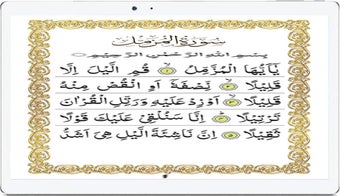 سورة المزمل
بسم الله الرحمن الرحيم
يٰۤاَيُّهَا الْمُزَّمِّلُ ۙ‏ ﴿۱﴾ قُمِ الَّيْلَ اِلَّا
قَلِيْلًا ۙ‏ ﴿۲﴾ نِّصْفَهٗۤ اَوِ انْقُصْ مِنْهُ
قَلِيْلًا ۙ‏ ﴿۳﴾ اَوْ زِدْ عَلَيْهِ وَرَتِّلِ الْقُرْاٰنَ
تَرْتِيْلًا ؕ‏ ﴿۴﴾ اِنَّا سَنُلْقِىْ عَلَيْكَ قَوْلًا
ثَقِيْلًا‏ ﴿۵﴾ اِنَّ نَاشِئَةَ الَّيْلِ هِىَ اَشَدُّ